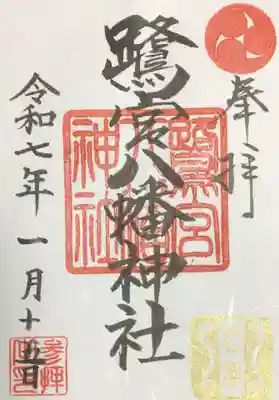 奉拝
鷺宮八幡神社
鷺宮
神社
令和七年一月十五日
参拝